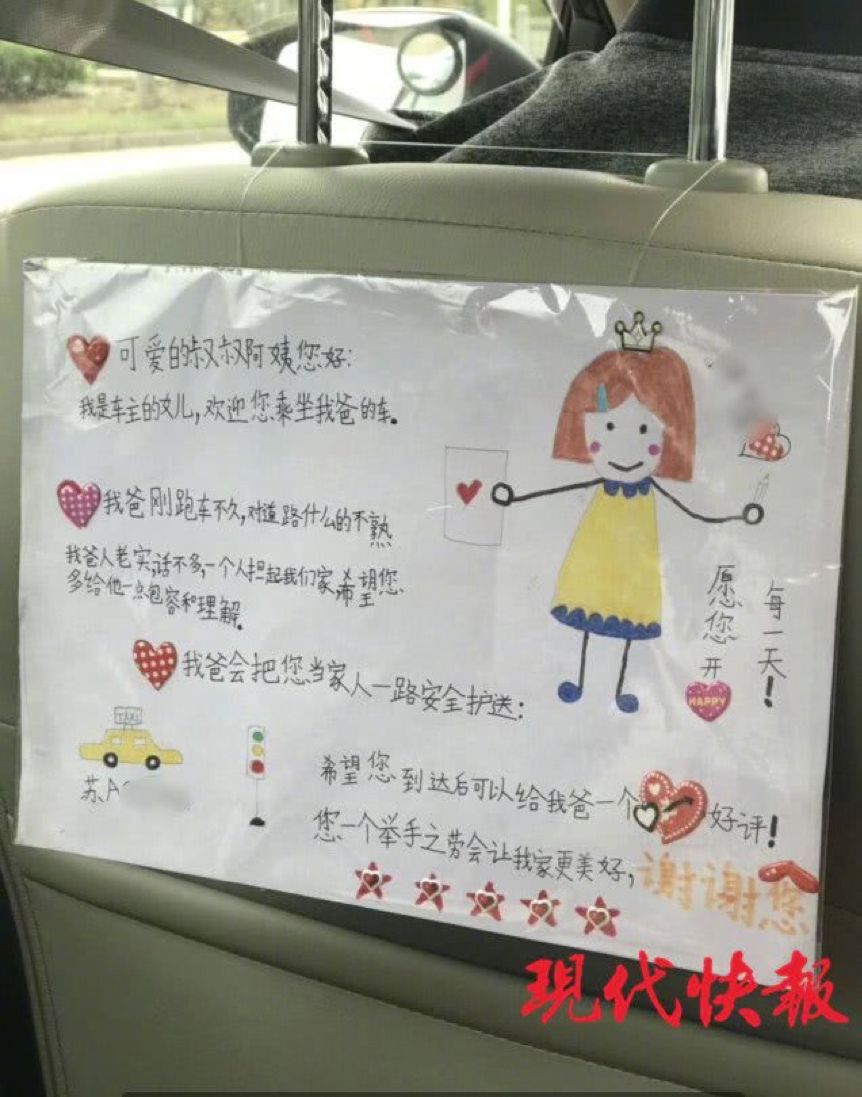 可爱的叔叔阿姨您好:
我是车主的女儿,欢迎您乘坐我爸的车。
我爸刚跑车不久,对道路什么的不熟
我爸人老实,话不多,一个人担起我们家,希望您
多给他一点包容和理解。
我爸会把您当家人一路安全护送:
愿您开
HAPPY
每一天!
TAXI
苏A
希望您到达后可以给我爸一个好评!
您一个举手之劳会让我家更美好,谢谢您
现代快報